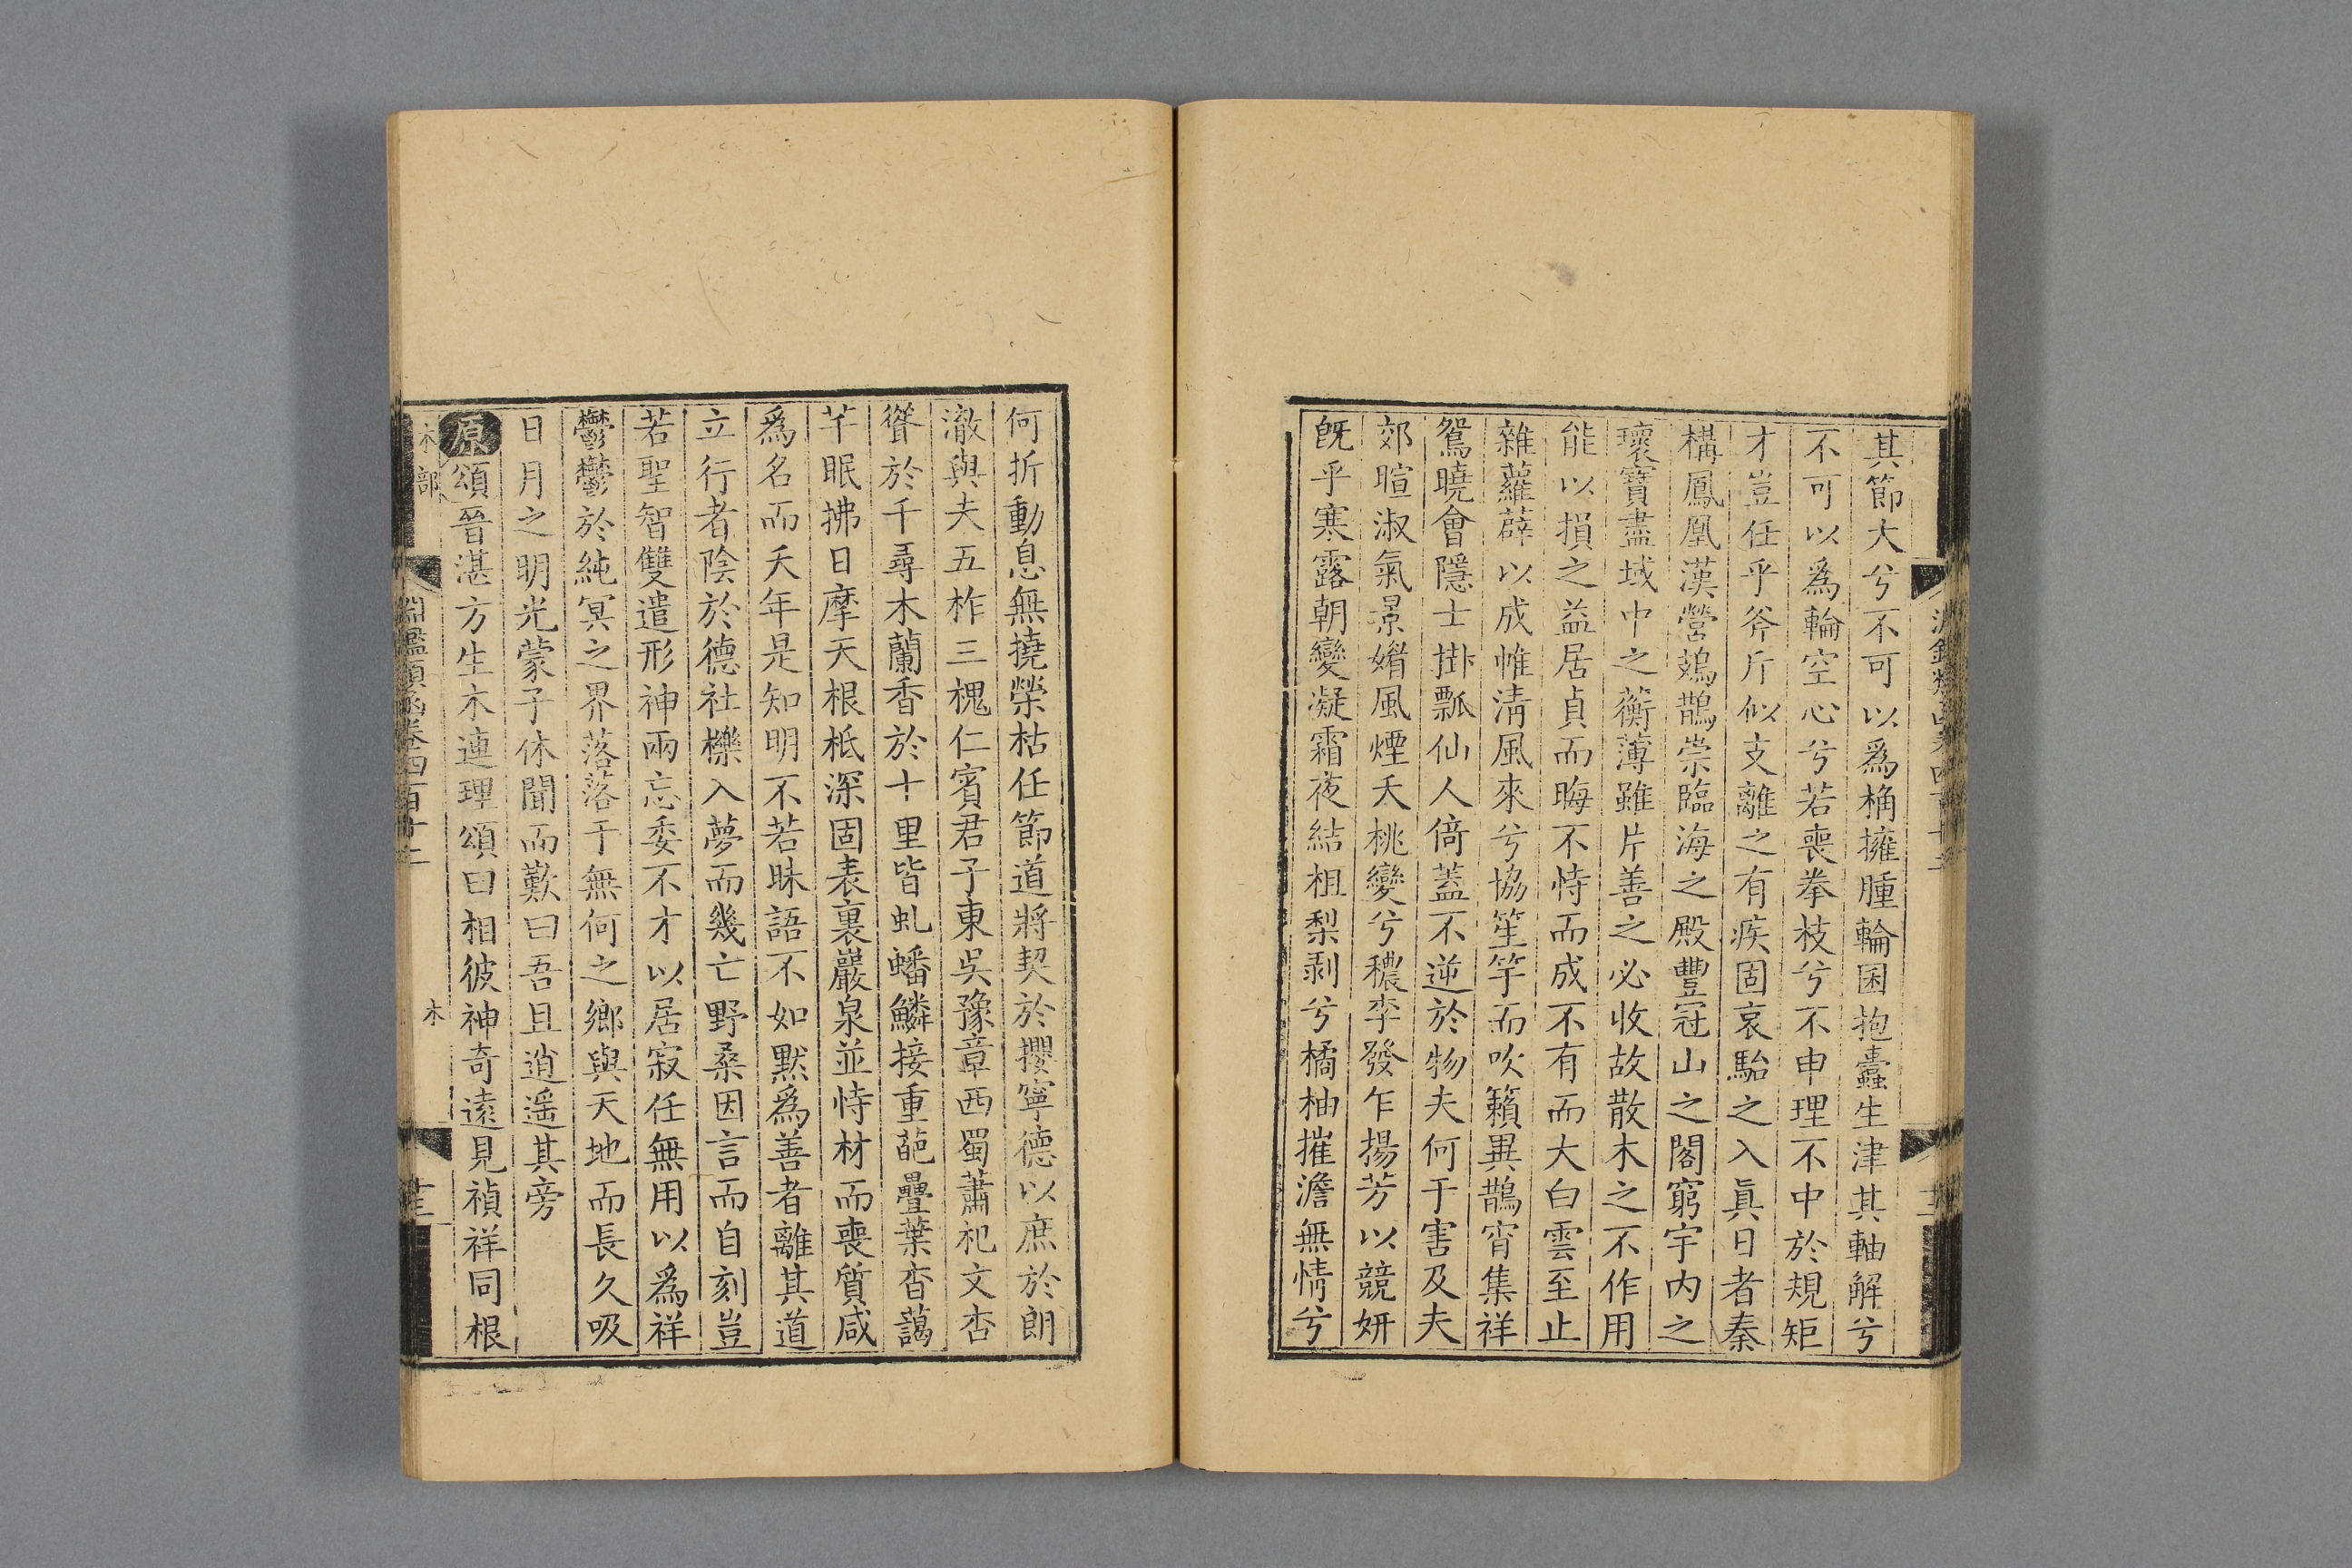 其節大兮不可以爲桷擁腫輪囷抱蠹生津其軸解兮
不可以爲輪空心兮若喪拳枝兮不申理不中於規矩
才豈任乎斧斤似支離之有疾固哀駘之入眞日者秦
構鳳凰漢營鳷鵲崇臨海之殿豐冠山之閣窮宇内之
瓌寶盡域中之蘅薄雖片善之必收故散木之不作用
能以損之益居貞而晦不恃而成不有而大白雲至止
雜蘿薜以成帷淸風來兮協笙竽而吹籟異鵲宵集祥
鴛曉會隱士掛瓢仙人倚蓋不逆於物夫何干害及夫
郊暄淑氣景媚風煙夭桃變兮穠李發乍揚芳以競妍
旣乎寒露朝變凝霜夜結柤梨剥兮橘柚摧澹無情兮
何折動息無撓榮枯任節道將契於攖寧德以庶於朗
澈與夫五柞三槐仁賓君子東吳豫章西蜀蕭杞文杏
聳於千尋木蘭香於十里皆虬蟠鱗接重葩疊葉杳藹
芊眠拂日摩天根柢深固表裏巖泉並恃材而喪質咸
爲名而夭年是知明不若昧語不如默爲善者離其道
立行者陰於德社櫟入夢而幾亡野桑因言而自刻豈
若聖智雙遣形神兩忘委不才以居寂任無用以爲祥
鬱鬱於純冥之界落落于無何之鄉與天地而長久吸
日月之明光蒙子休聞而歎曰吾且逍遥其旁
原頌晉湛方生木連理頌曰相彼神奇遠見禎祥同根
木部
淵鑑類函卷四百十二
木